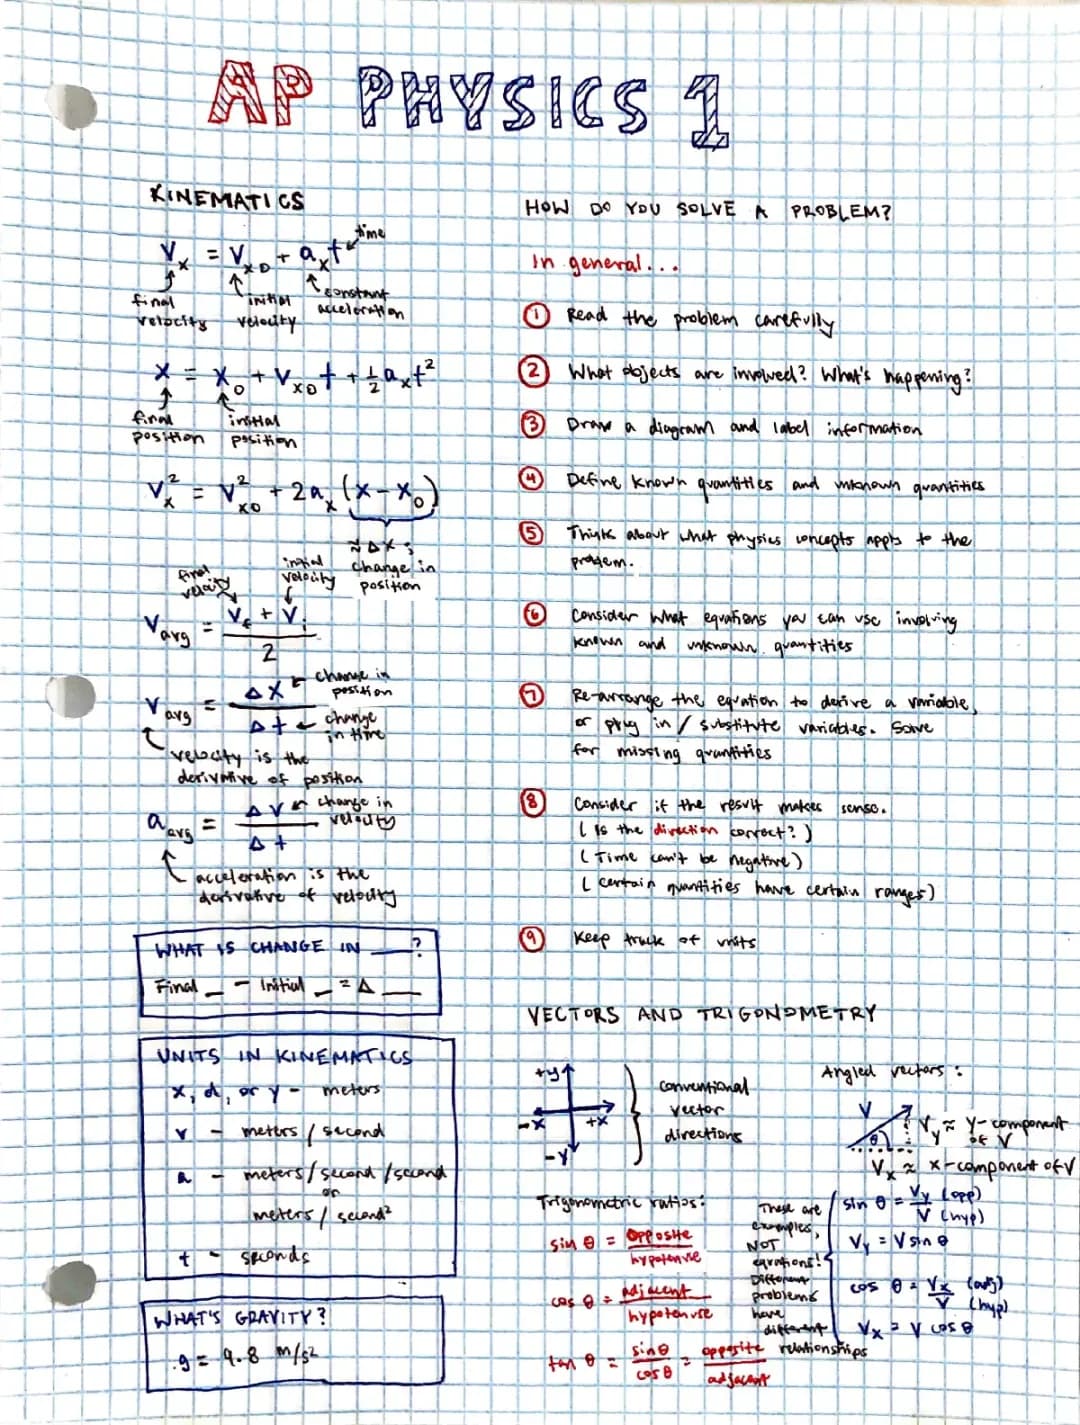 AP PHYSICS 1
KINEMATICS
Vx = Vx0 + axt
time
final velocity
initial velocity
constant acceleration
x = x0 + Vx0t + ½axt²
final position
initial position
Vx² = Vx0² + 2ax(x-x0)
≈ Δx ;
change in
position
final velocity
initial velocity
Varg = Vf + Vi / 2
Varg = Δx / Δt
change in position
change in time
velocity is the
derivative of position
aarg = Δv / Δt
change in velocity
acceleration is the
derivative of velocity
WHAT IS CHANGE IN ___?
Final _ - Initial _ = Δ __
UNITS IN KINEMATICS
x, d, or y - meters
v - meters / second
a - meters / second / second
or
meters / second²
t - seconds
WHAT'S GRAVITY?
g = 9.8 m/s²
HOW DO YOU SOLVE A PROBLEM?
In general...
1 Read the problem carefully
2 What objects are involved? What's happening?
3 Draw a diagram and label information
4 Define known quantities and unknown quantities
5 Think about what physics concepts apply to the
problem.
6 Consider what equations you can use involving
known and unknown quantities
7 Re-arrange the equation to derive a variable,
or plug in / substitute variables. Solve
for missing quantities
8 Consider if the result makes sense.
(Is the direction correct?)
(Time can't be negative)
(certain quantities have certain ranges)
9 Keep track of units
VECTORS AND TRIGONOMETRY
+y
-x +x
-y
conventional
vector
directions
Angled vectors:
V
θ
Vy ≈ y-component
of V
Vx ≈ x-component of V
Trigonometric ratios:
sin θ = opposite / hypotenuse
cos θ = adjacent / hypotenuse
tan θ = sin θ / cos θ = opposite / adjacent
These are
examples,
NOT
equations!
Different
problems
have
different
relationships
sin θ = Vy (opp) / V (hyp)
Vy = V sin θ
cos θ = Vx (adj) / V (hyp)
Vx = V cos θ